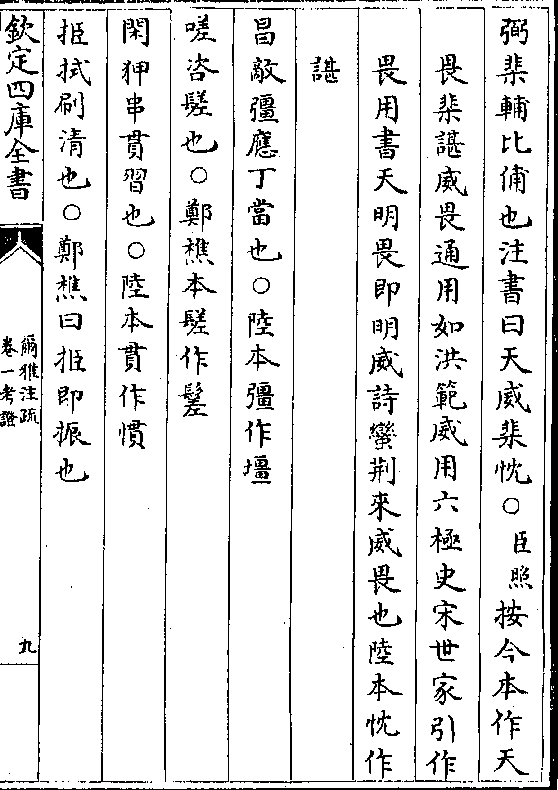 弼棐輔比俌也注書曰天威棐忱○臣照按今本作天
畏棐諶威畏通用如洪範威用六極史宋世家引作
畏用書天明畏即明威詩蠻荆來威畏也陸本忱作
諶
昌敵彊應丁當也○陸本彊作壃
嗟咨䰹也○鄭樵本䰹作髲
閑狎串貫習也○陸本貫作慣
挋拭刷清也○鄭樵曰挋即振也
欽定四庫全書
爾雅注疏
卷一考證
九